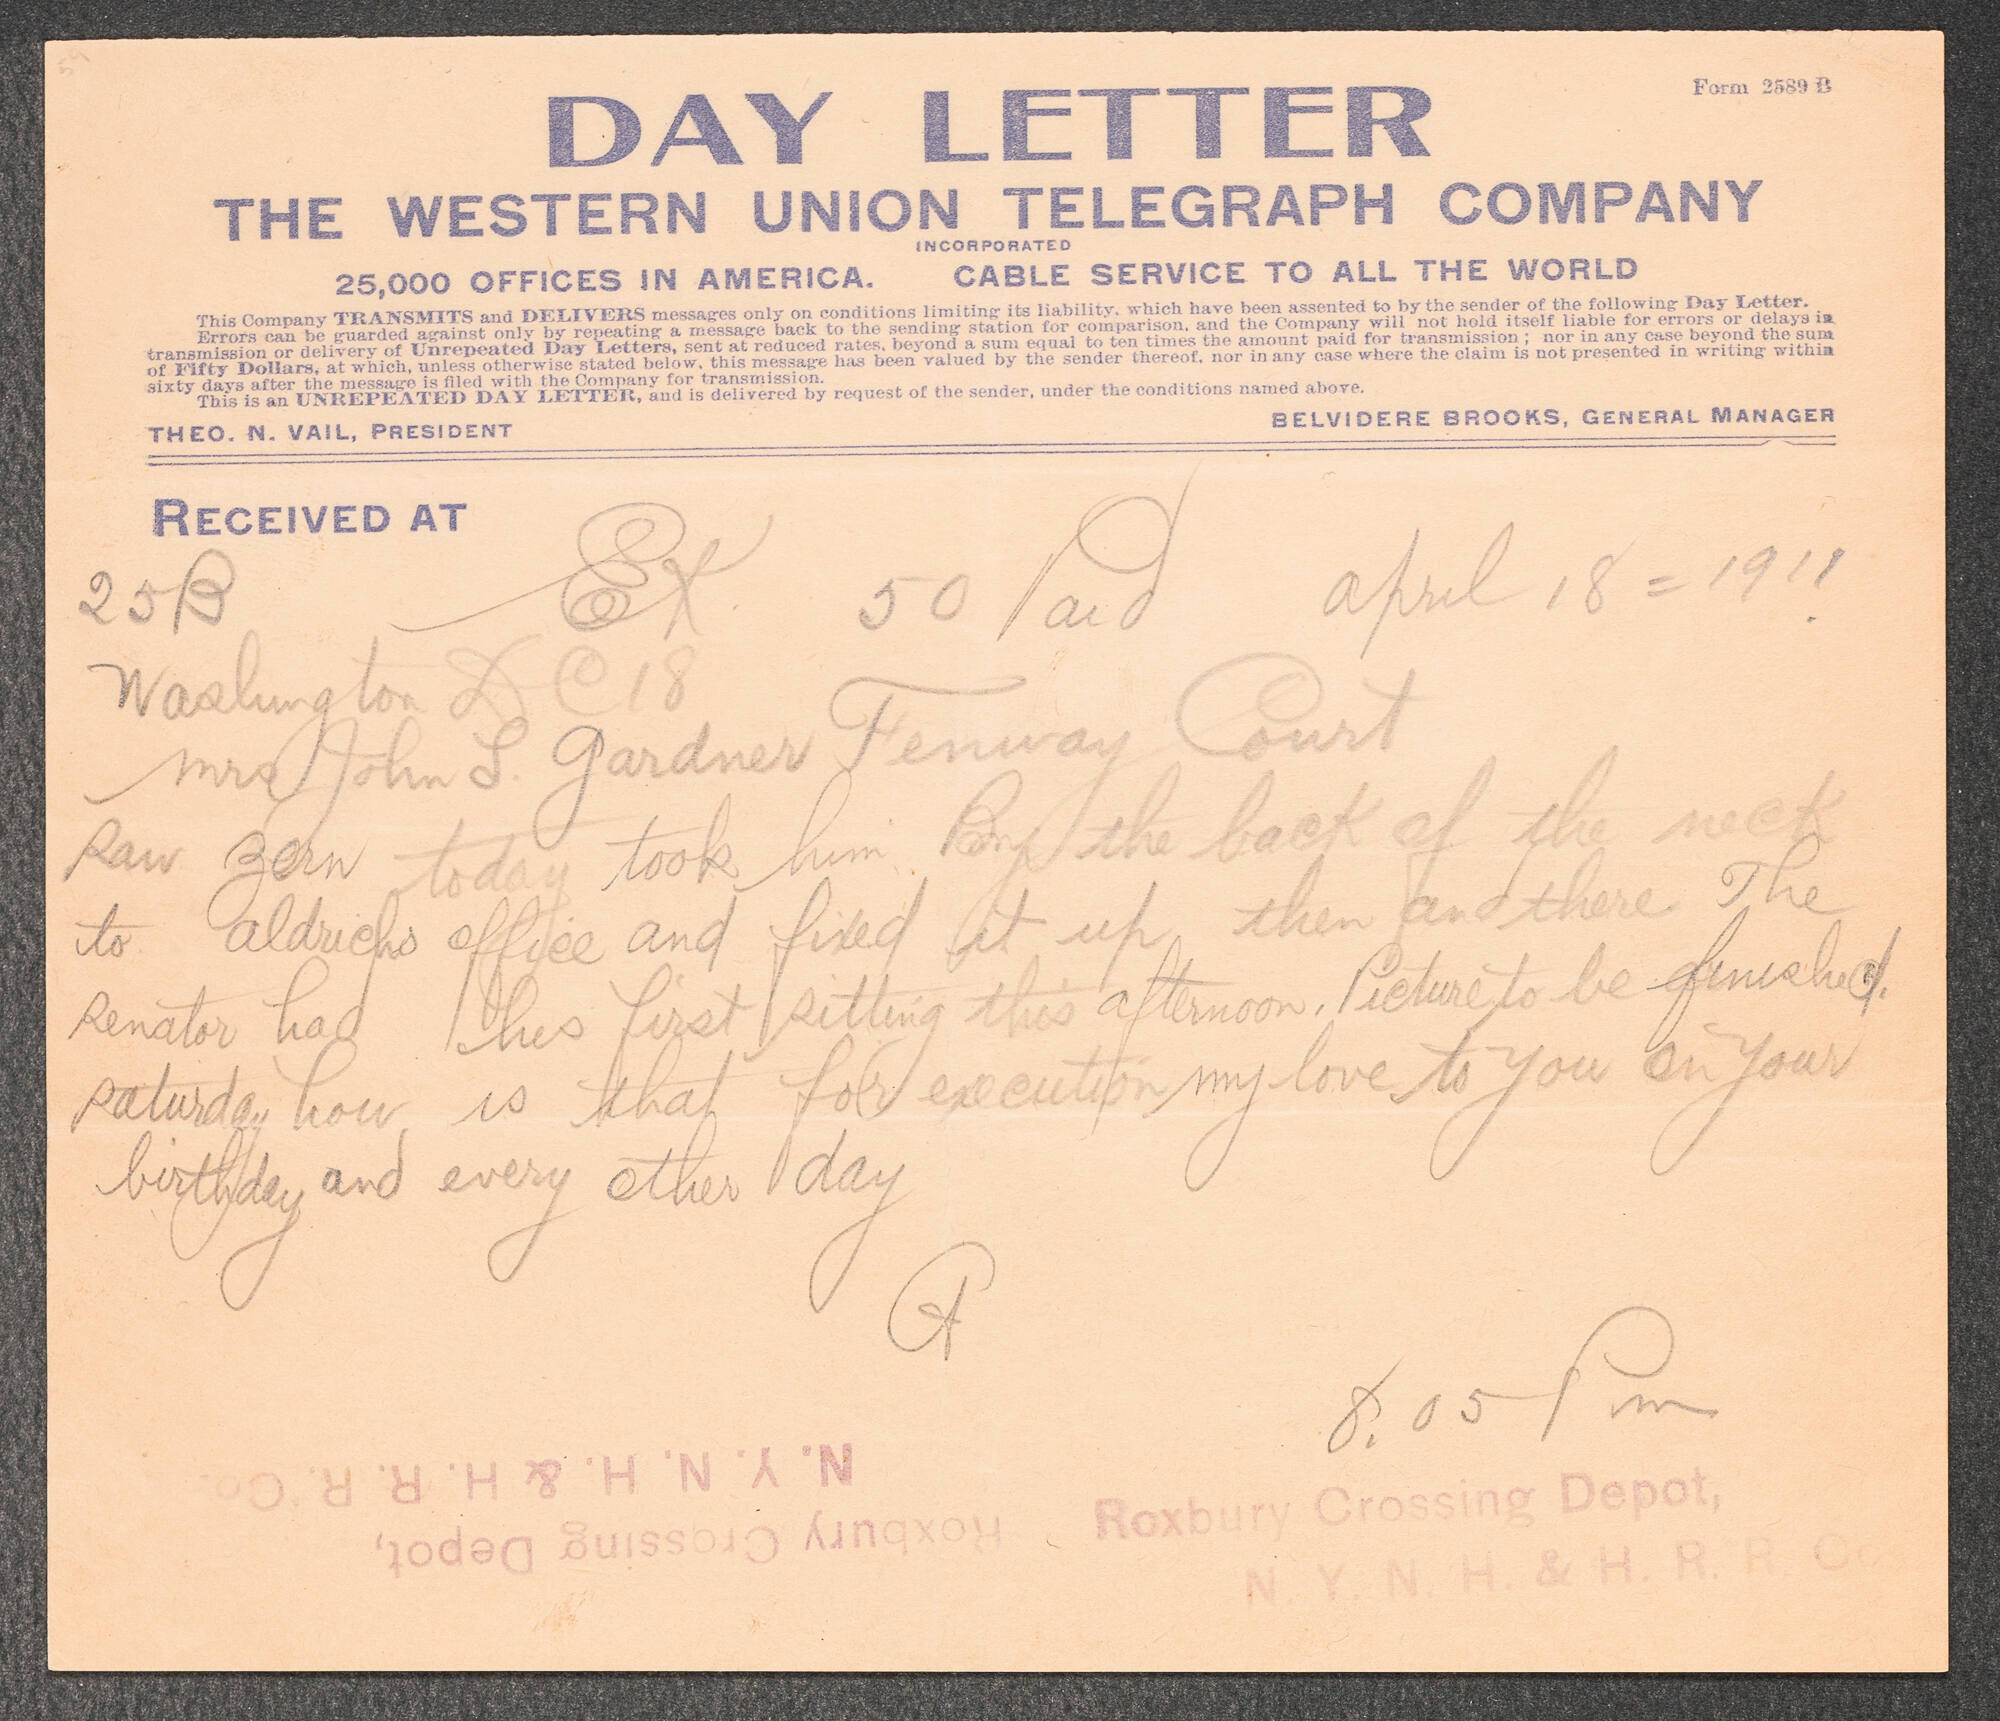 Form 2589 B
DAY LETTER
THE WESTERN UNION TELEGRAPH COMPANY
INCORPORATED
25,000 OFFICES IN AMERICA. CABLE SERVICE TO ALL THE WORLD
This Company TRANSMITS and DELIVERS messages only on conditions limiting its liability, which have been assented to by the sender of the following Day Letter.
Errors can be guarded against only by repeating a message back to the sending station for comparison, and the Company will not hold itself liable for errors or delays in
transmission or delivery of Unrepeated Day Letters, sent at reduced rates, beyond a sum equal to ten times the amount paid for transmission; nor in any case beyond the sum
of Fifty Dollars, at which, unless otherwise stated below, this message has been valued by the sender thereof, nor in any case where the claim is not presented in writing within
sixty days after the message is filed with the Company for transmission.
This is an UNREPEATED DAY LETTER, and is delivered by request of the sender, under the conditions named above.
THEO. N. VAIL, PRESIDENT BELVIDERE BROOKS, GENERAL MANAGER
RECEIVED AT
25B Ex. 50 Paid april 18 = 1911
Washington D C 18
mrs John L. Gardner Fenway Court
saw zorn today took him By the back of the neck
to aldrichs office and fixed it up then and there The
senator had his first sitting this afternoon. Picture to be finished.
saturday how is that for execution my love to you on your
birthday and every other day
A
8.05 Pm
Roxbury Crossing Depot,
N. Y. N. H. & H. R. R. Co
Roxbury Crossing Depot,
N. Y. N. H. & H. R. R. Co.